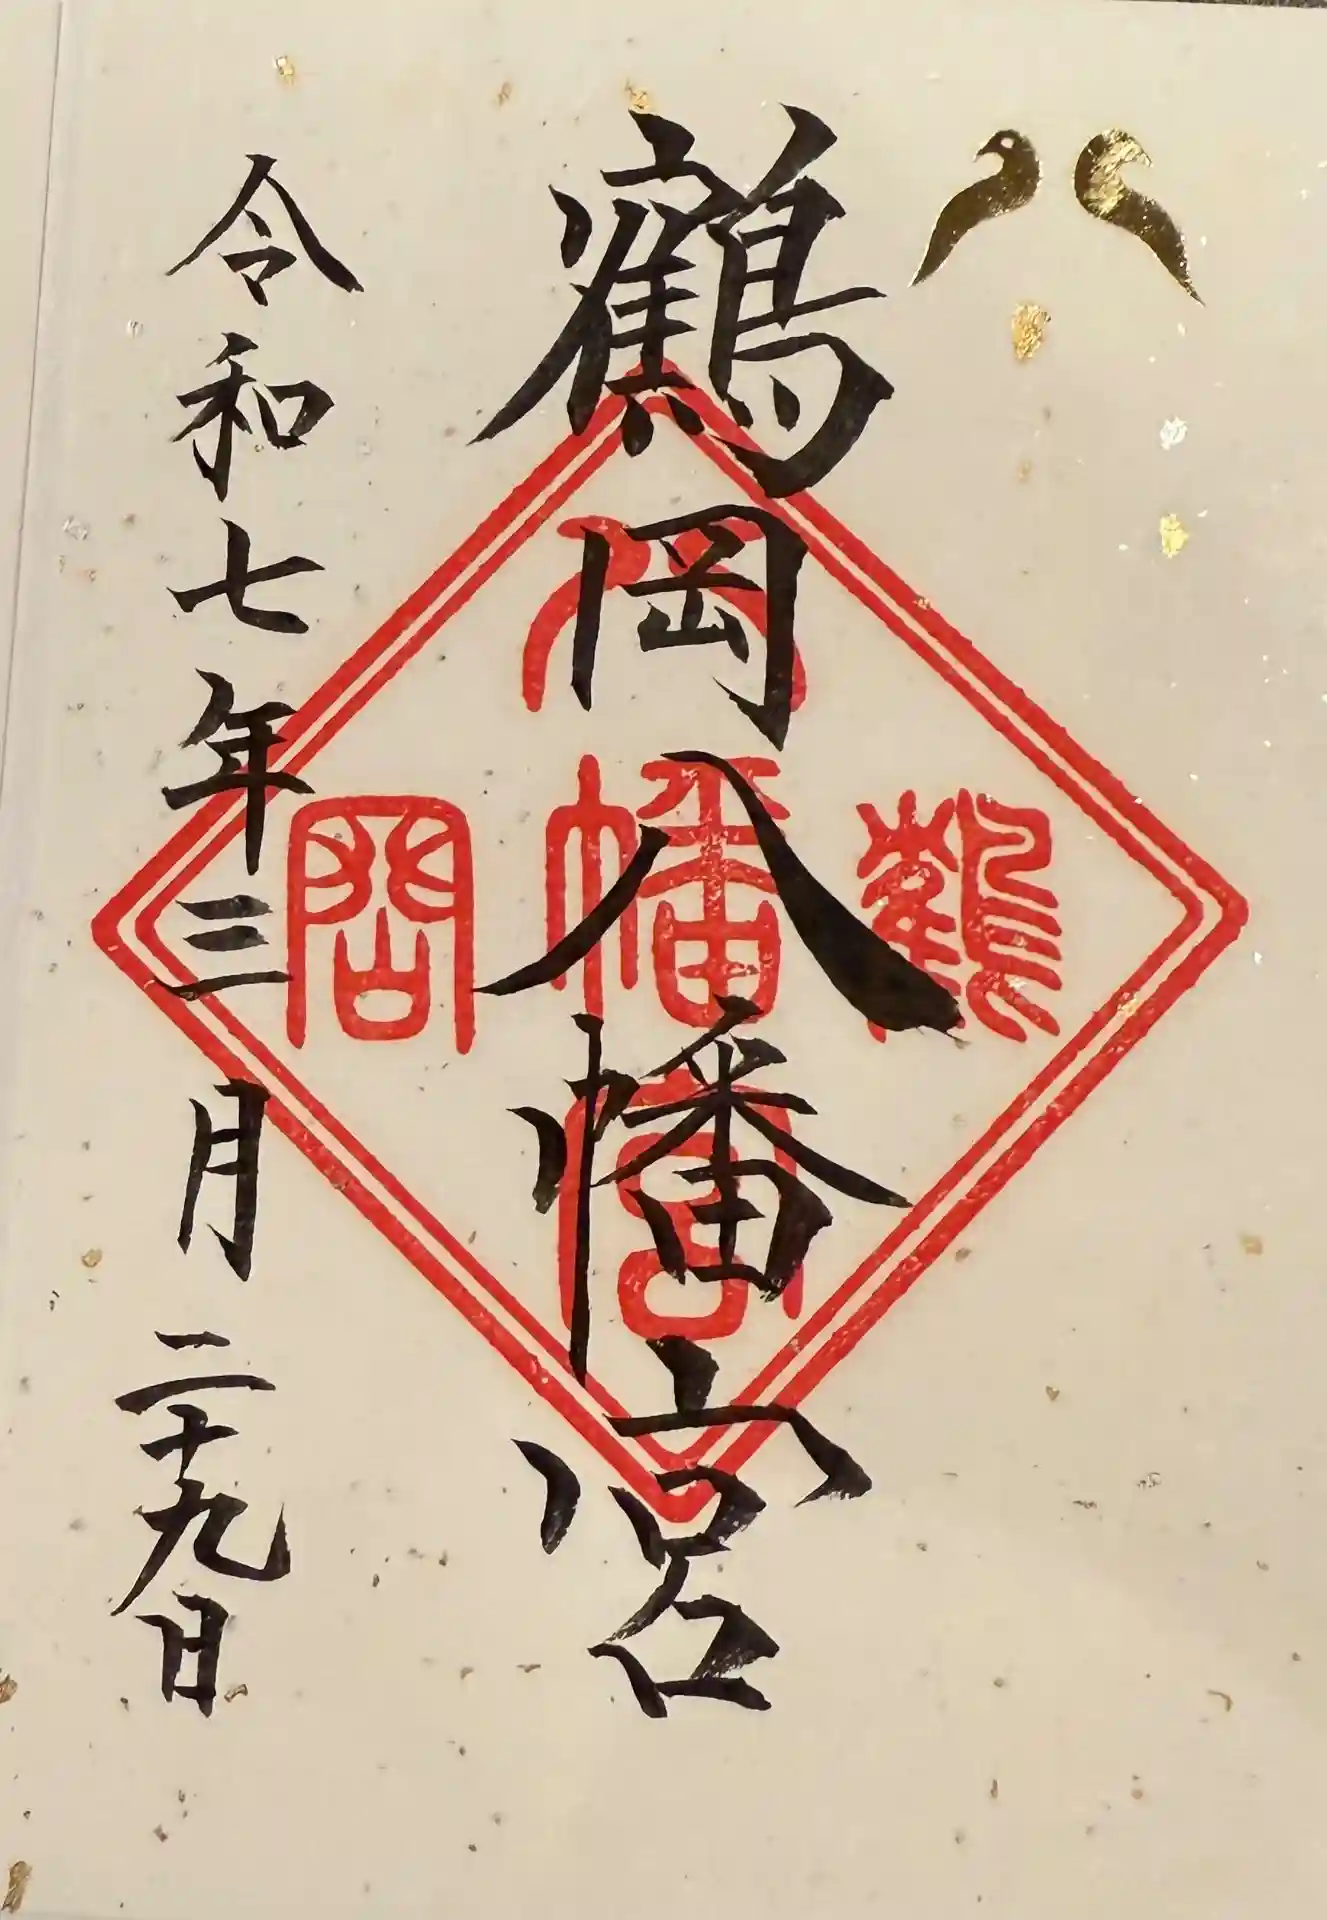 鶴岡八幡宮
鶴
八幡宮
岡
令和七年三月二十九日